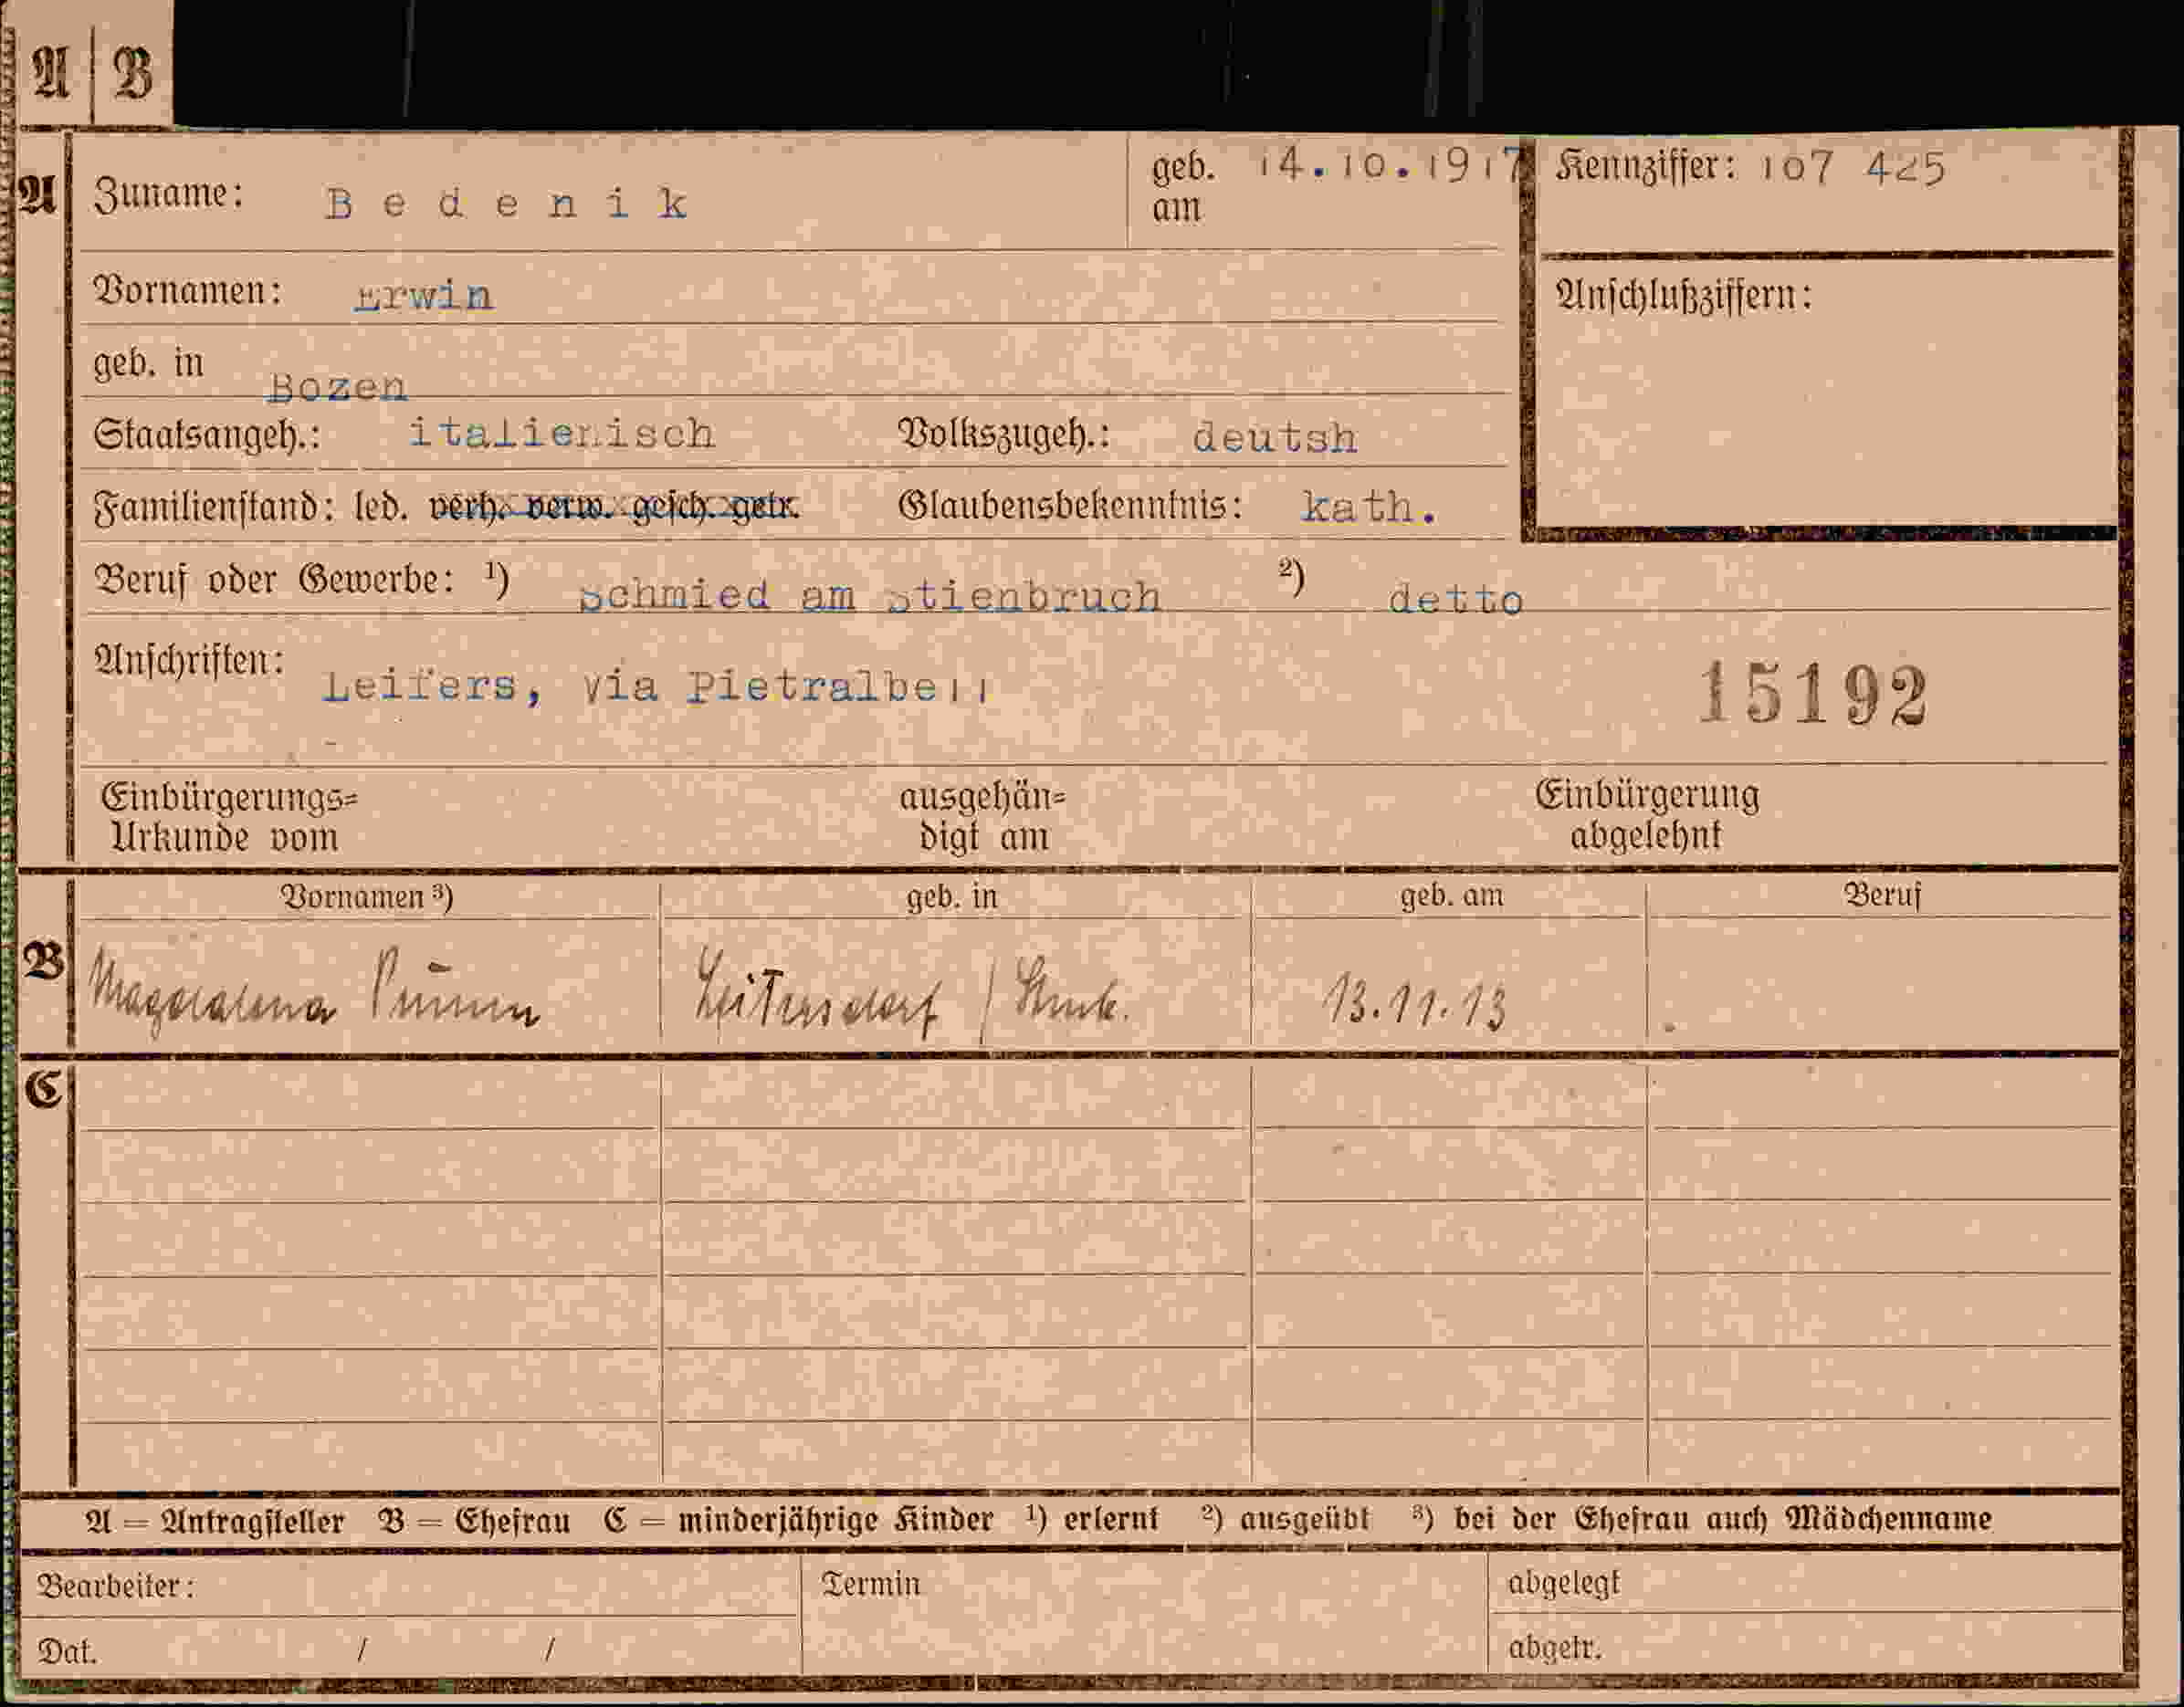 A B
A Zuname: Bedenik geb. am 14.10.1917 Kennziffer: 107 425
Vornamen: Erwin Anschlußziffern:
geb. in Bozen
Staatsangeh.: italienisch Volkszugeh.: deutsh
Familienstand: led. verh. verw. gesch. getr. Glaubensbekenntnis: kath.
Beruf oder Gewerbe: ¹) Schmied am Stienbruch ²) detto
Anschriften: Leifers, via Pietralbe11
15192
Einbürgerungs= ausgehän= Einbürgerung
Urkunde vom digt am abgelehnt
Vornamen ³) geb. in geb. am Beruf
B Magdalena Leitersdorf / 13.11.13
C
A = Antragsteller B = Ehefrau C = minderjährige Kinder ¹) erlernt ²) ausgeübt ³) bei der Ehefrau auch Mädchenname
Bearbeiter: Termin abgelegt
Dat. / / abgetr.